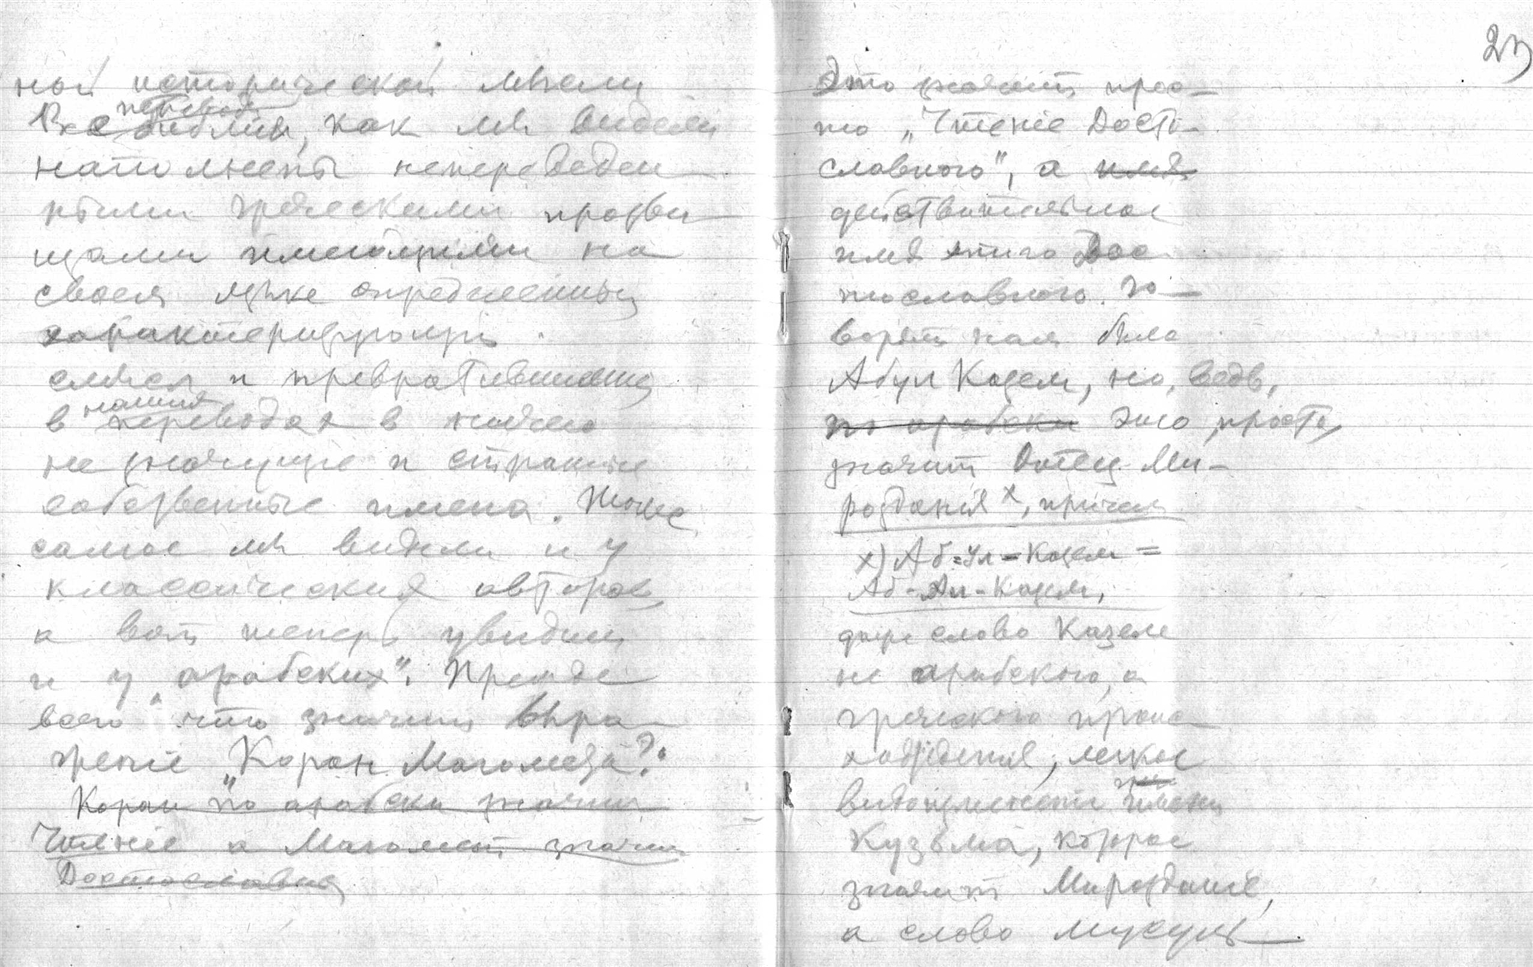 ной исторической мысли
Все переводы библии, как мы видели
наполнены непереведен
ными греческими прозви
щами имеющими на
своем языке определенный
характеризующий
смысл и превратившимися
в наших переводах в ничего
не значущие и странные
собственные имена. Тоже
самое мы видели и у
классических авторов
а вот теперь увидим
и у „арабских". Прежде
всего что значит выра
жение „Коран Магомеда"?
Коран по арабски значит
Чтение а Магомет значит
Достославный
23
Это значит прос-
то „Чтение Досто-
славного", а имя
действительное
имя этого Дос
тославного. го-
ворят нам было
Абул Казем, но, ведь,
по арабски это просто
значит Отец Ми-
розданія х, причем
х) Аб-ул-Казем =
Аб-Ал-Казем,
даже слово Казем
не арабского, а
греческого проис-
хождения, легкое
видоизменение имени
Кузьма, которое
значит Мироздание,
а слово мусуль-